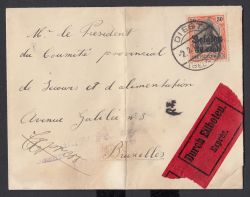 Mr le Président
du Comité provincial
de Secours et d'alimentation
Avenue Galilée nº 5
Bruxelles
Express
DIEST
30
Belgien
Durch Eilboten.
Exprès.